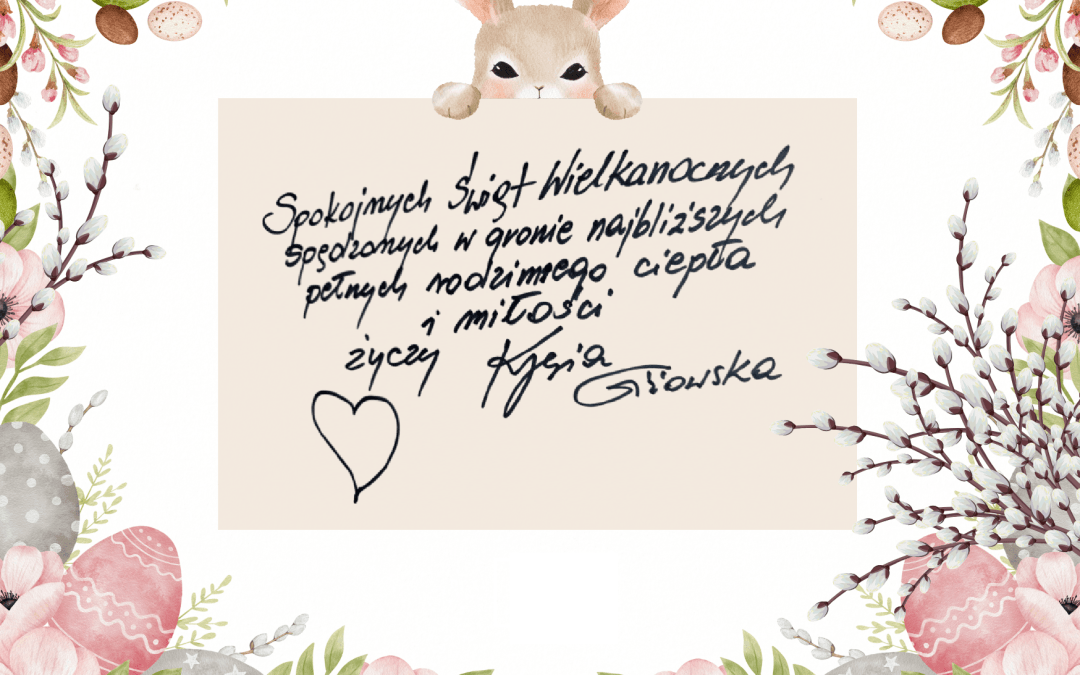 Spokojnych Świąt Wielkanocznych
spędzonych w gronie najbliższych
pełnych rodzinnego ciepła
i miłości
życzy